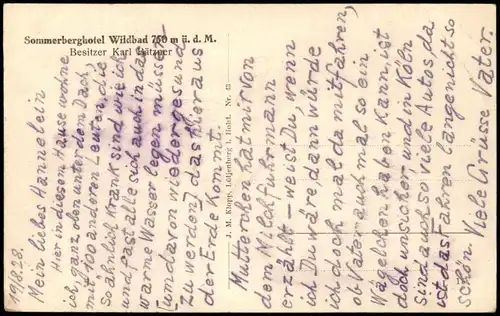 Sommerberghotel Wildbad 750 m ü. d. M.
Besitzer Karl
J. M. Klopp, Lütjenberg i. Holst. Nr. 43
19/8.28.
Mein liebes Hannelein
Hier in diesem Hause wohne
ich, ganz oben unter dem Dach,
mit 100 anderen Leuten, die
so ähnlich krank sind wie ich
und fast alle sich auch in das
warme Wasser legen müssen
um davon wieder gesund
zu werden, das hier aus
der Erde Kommt.
Mutterchen hat mir von
dem Milchfuhrmann
erzählt - weist Du, wenn
ich Du wäre dann würde
ich doch mal da mitfahren,
ob Vater auch mal so ein
Wägelchen haben Kann, ist
doch unsicher, und in Köln
sind auch so viele Autos da
ist das Fahren lange nicht so
schön. Viele Grüsse Vater.